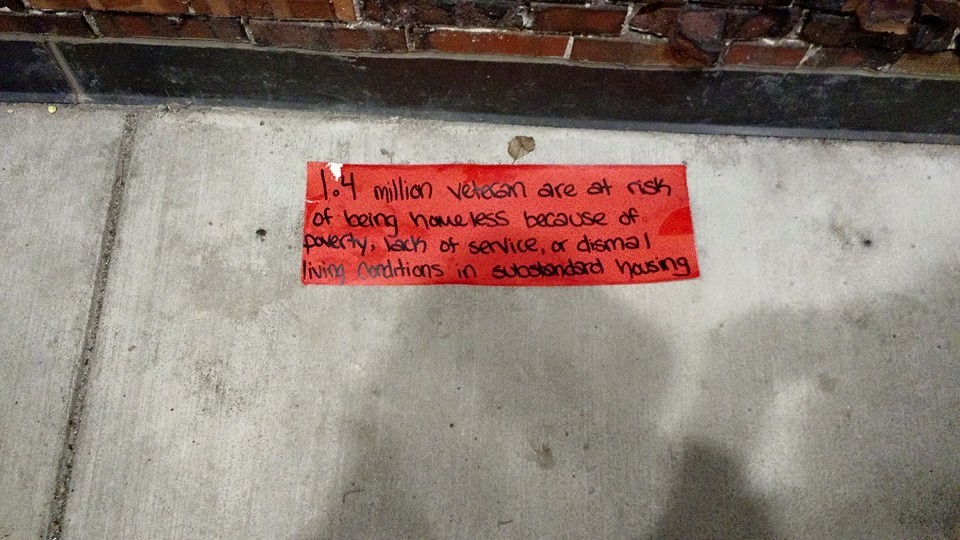 1.4 million veteran are at risk
of being homeless because of
poverty, lack of service, or dismal
living conditions in substandard housing